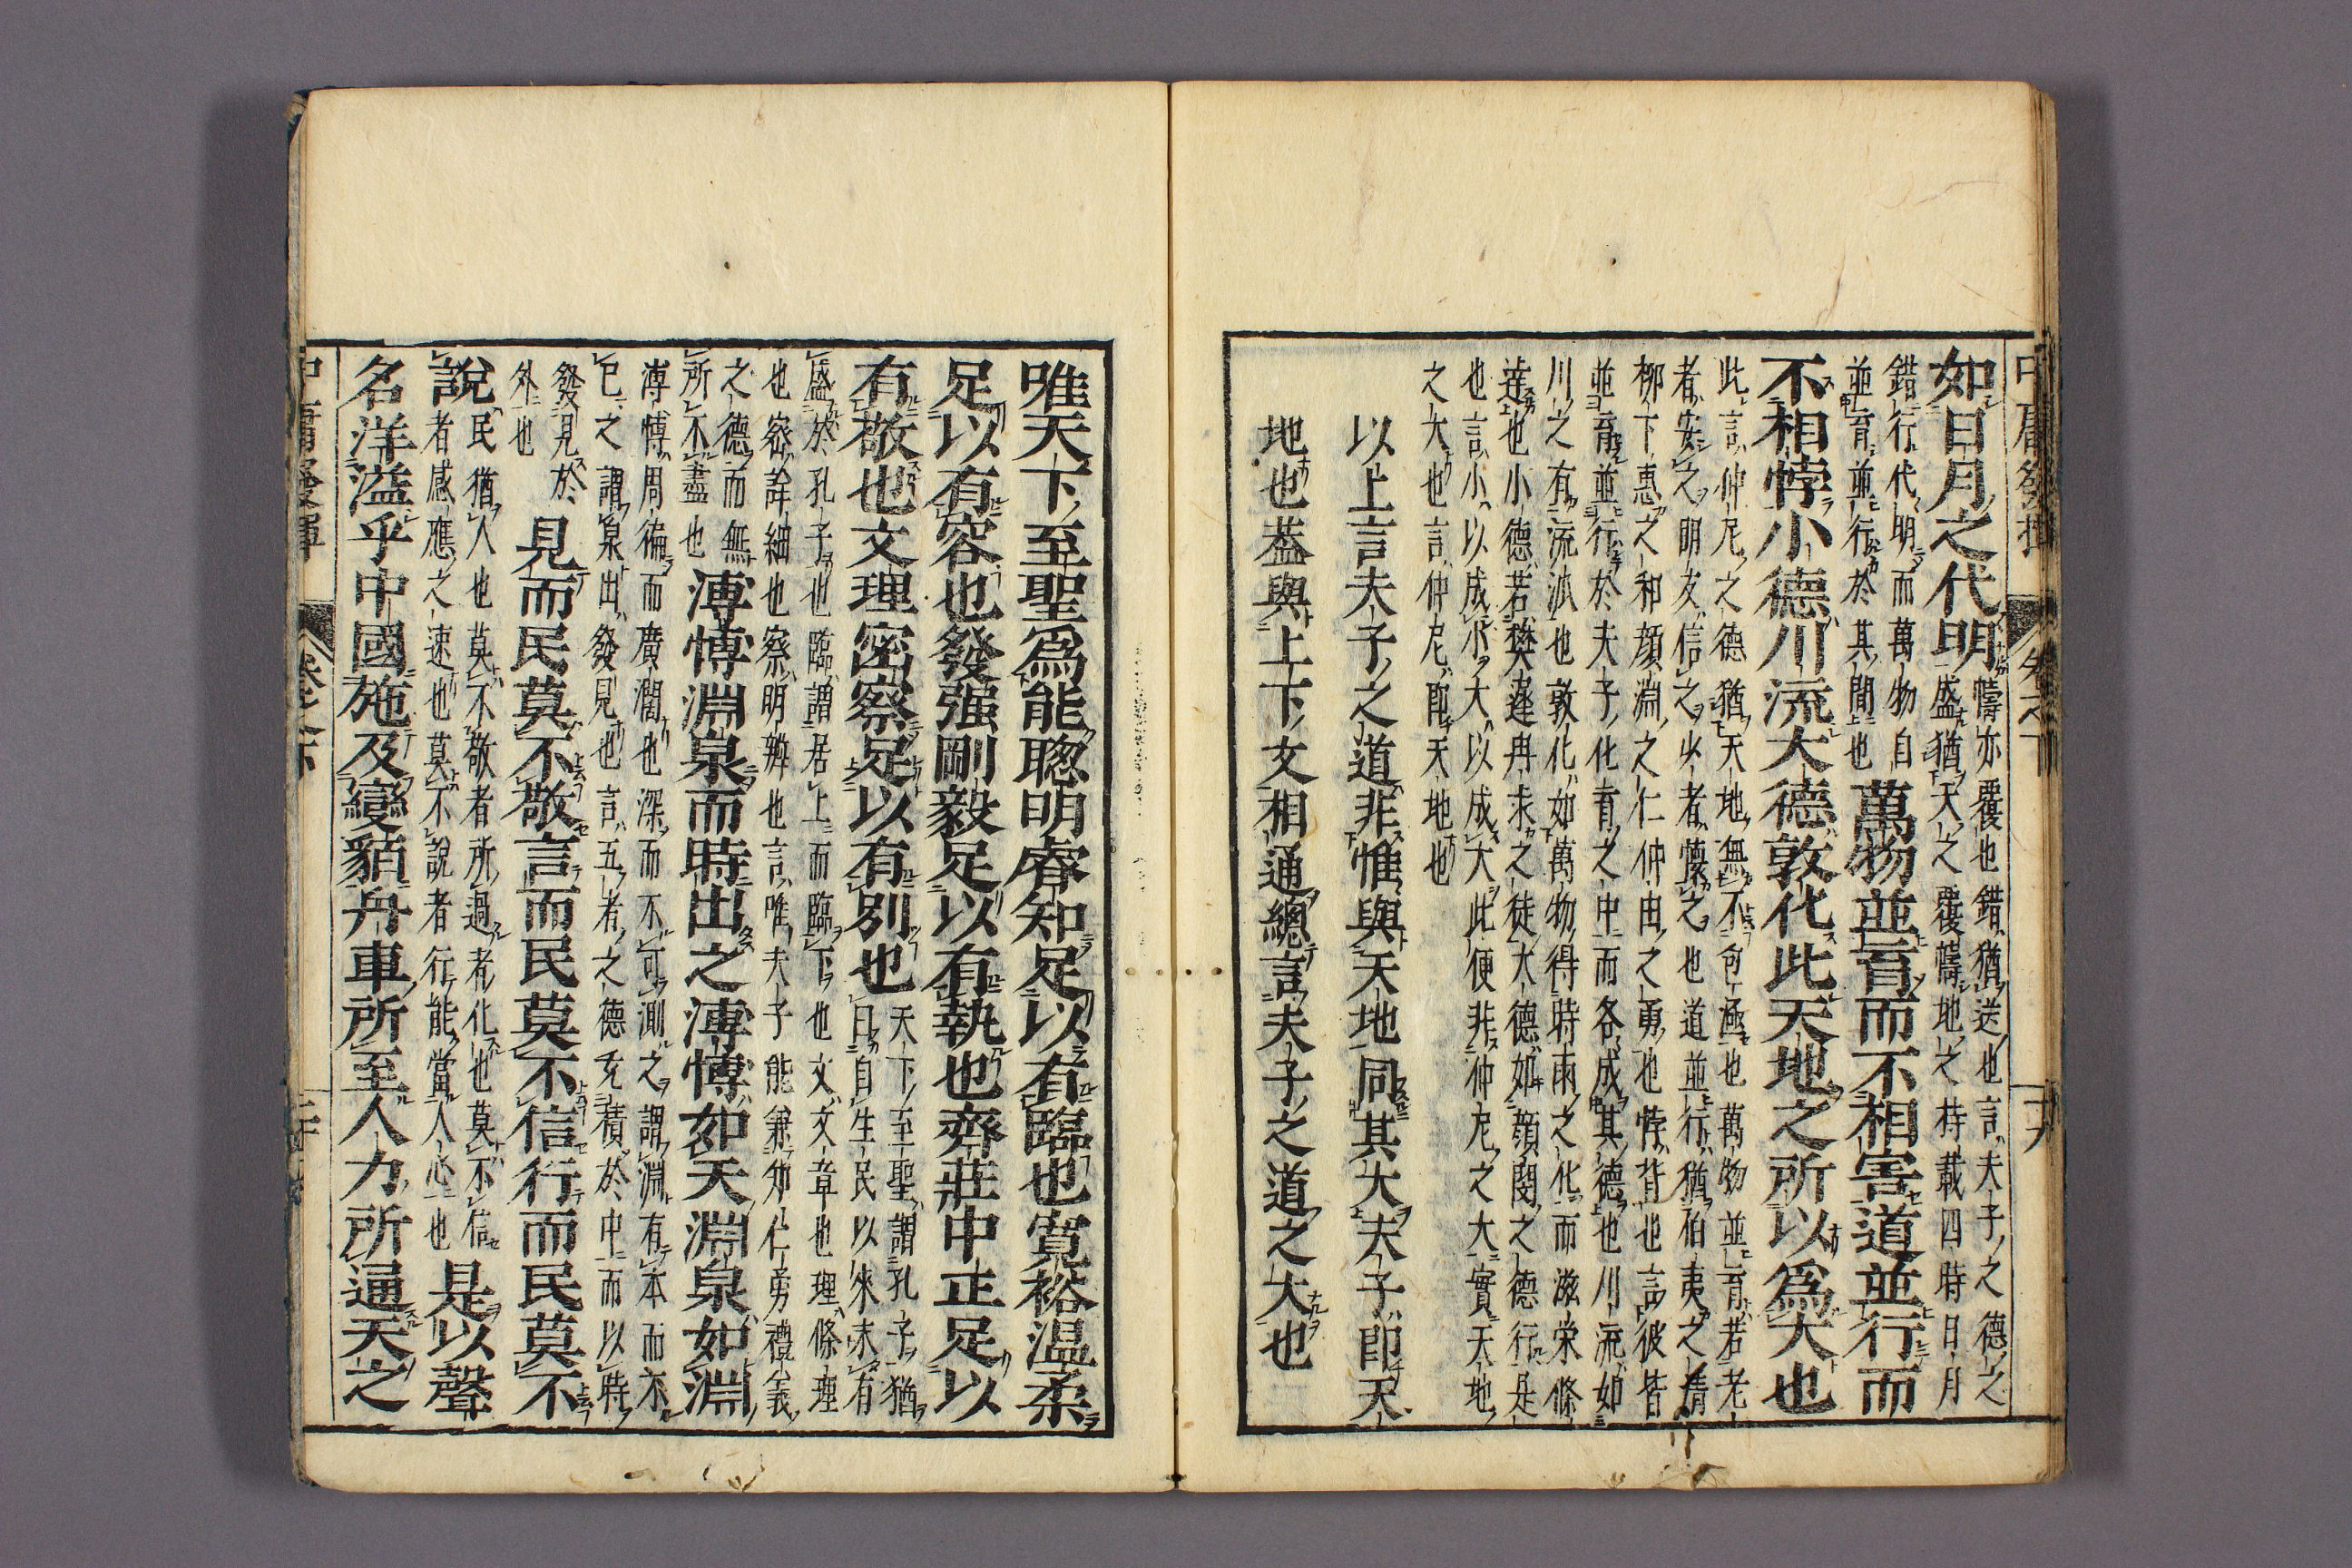 中庸發揮　卷之下　十九
如日月之代明
幬亦覆也錯猶迭也言夫子之德之
盛猶天之覆幬地之持載四時日月
錯行代明而萬物自
並育並行於其間也
萬物並育而不相害道並行而
不相悖小德川流大德敦化此天地之所以爲大也
此言仲尼之德猶天地無不包涵也萬物並育若老
者安之朋友信之少者懷之也道並行猶伯夷之清
柳下惠之和顏淵之仁仲由之勇也悖背也言彼皆
並育並行於夫子化育之中而各成其德也川流如
川之有流派也敦化如萬物得時雨之化而滋栄條
達也小德若樊遲冉求之徒大德如顏閔之德行是
也言小以成小大以成大此便非仲尼之大實天地
之大也言仲尼即天地也
以上言夫子之道非惟與天地同其大夫子即天
地也葢與上下文相通總言夫子之道之大也
唯天下至聖爲能聰明睿知足以有臨也寬裕温柔
足以有容也發强剛毅足以有執也齊莊中正足以
有敬也文理密察足以有別也
天下至聖謂孔子猶
曰自生民以來未有
盛於孔子也臨謂居上而臨下也文文章也理條理
也密詳細也察明辨也言唯夫子能兼知仁勇禮義
之德而無
所不盡也
溥博淵泉而時出之溥博如天淵泉如淵
溥博周徧而廣濶也深而不可測之謂淵有本而不
已之謂泉出發見也言五者之德充積於中而以時
發見於
外也
見而民莫不敬言而民莫不信行而民莫不
說
民猶人也莫不敬者所過者化也莫不信
者感應之速也莫不說者行能當人心也
是以聲
名洋溢乎中國施及蠻貊舟車所至人力所通天之
中庸發揮　卷之下